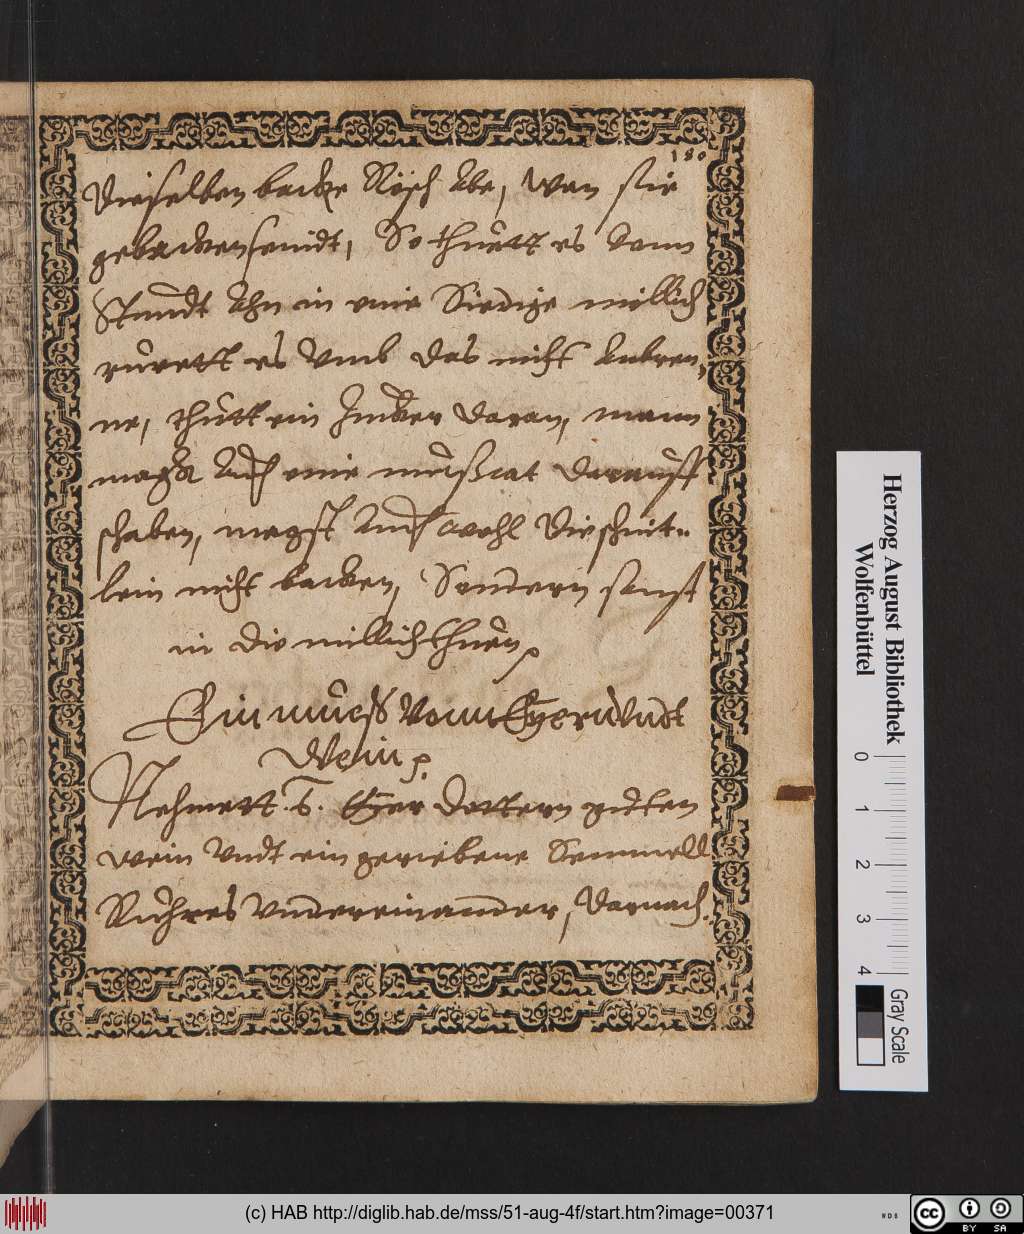 180
Dieselben backe Resch Abe, wan sie
gebacken seindt, So thuett es vonn
Stundt Ahn in eine Siedige millich
ruerett es Vmb das nicht Anbren,
ne, thutt ein Zucker daran, mann
mags Auch eine darauff
schaben, magst Auch wohl die schnit=
lein nicht backen, Sondern sonst
in die millich thuen
Ein muess Vonn Eyern Vndt
Wein
Nehmett 6. Eyer dottern guten
wein Vndt ein geriebene Semmell
Ruhres Vndereinander, darnach
Herzog August Bibliothek
Wolfenbüttel
0 1 2 3 4
Gray Scale
(c) HAB http://diglib.hab.de/mss/51-aug-4f/start.htm?image=00371
WDB
cc
BY SA